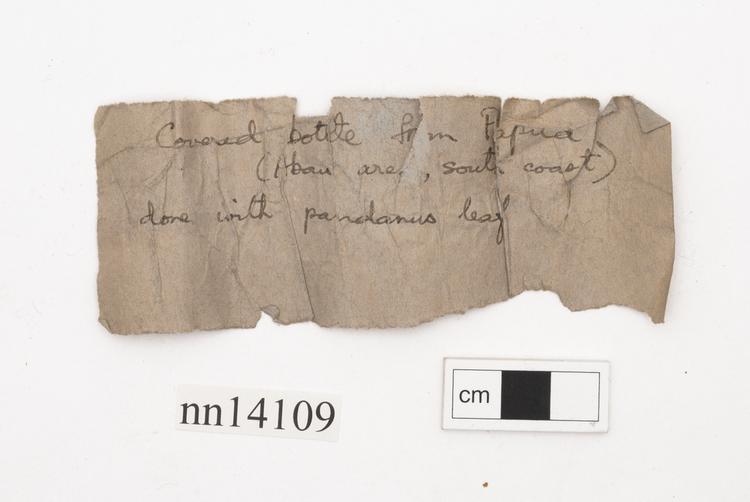 Covered bottle from Papua
(Abau area, south coast)
done with pandanus leaf
nn14109
cm